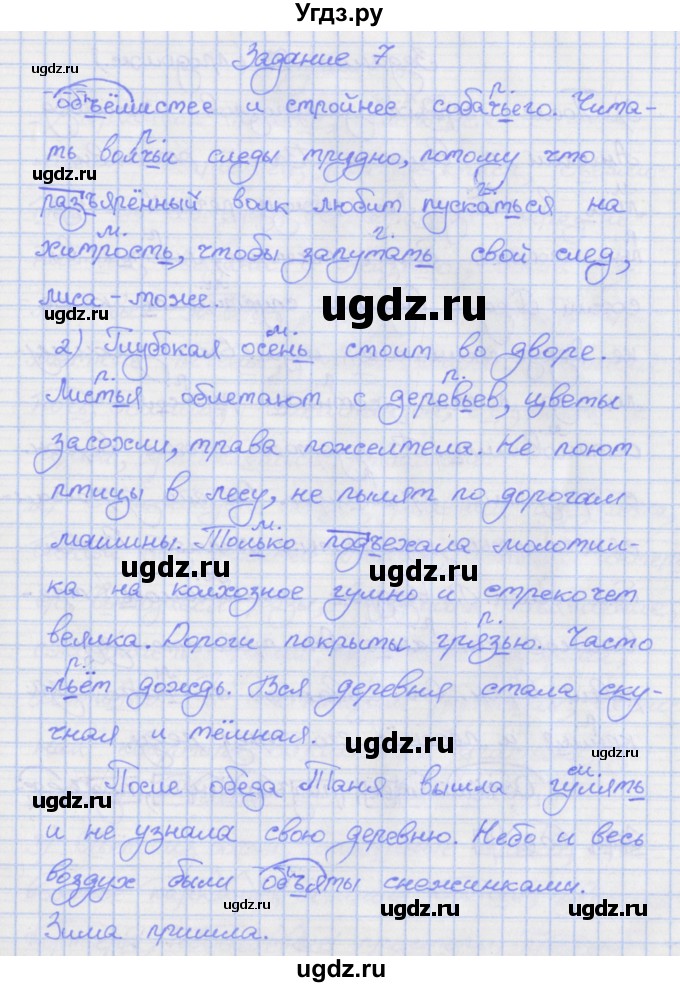 Угдз.ру
Задание 7
ugdz.ru
объёмистее и стройнее собачьего. Чита-
п.
ть волчьи следы трудно, потому что
п.
ugdz.ru
разъярённый волк любит пускаться на
г.
хитрость, чтобы запутать свой след,
м. г.
лиса - тоже.
ugdz.ru
ugdz.ru
2) Глубокая осень стоит во дворе.
м.
Листья облетают с деревьев, цветы
п. п.
засохли, трава пожелтела. Не поют
птицы в лесу, не пылят по дорогам
машины. Только подъехала молотил-
м.
ugdz.ru ugdz.ru
ка на колхозное гумно и стрекочет
веялка. Дороги покрыты грязью. Часто
п.
льёт дождь. Вся деревня стала ску-
п.
чная и тёмная.
ugdz.ru
ugdz.ru
После обеда Таня вышла гулять
ugdz.ru
и не узнала свою деревню. Небо и весь
воздух были объяты снежинками.
ugdz.ru ugdz.ru ugdz.ru
Зима пришла.
ugdz.ru